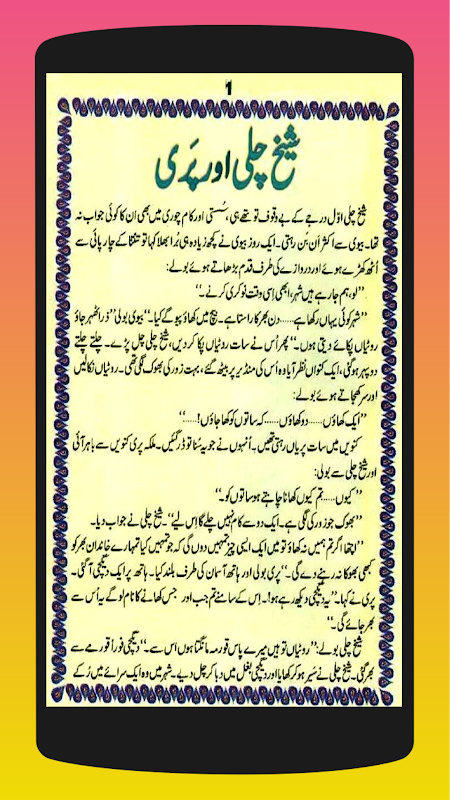 1
شیخ چلی اور پَری
شیخ چلی اوّل درجے کے بے وقوف تو تھے ہی، سُستی اور کام چوری میں بھی ان کا کوئی جواب نہ
تھا۔ بیوی سے اکثر اَن بَن رہتی۔ ایک روز بیوی نے کچھ زیادہ ہی بُرا بھلا کہا تو تنتنا کے چارپائی سے
اُٹھ کھڑے ہوئے اور دروازے کی طرف قدم بڑھاتے ہوئے بولے:
’’لو، ہم جا رہے ہیں شہر، ابھی اِسی وقت نوکری کرنے۔‘‘
’’شہر کوئی یہاں رکھا ہے......دن بھر کا راستا ہے۔ بیچ میں کھاؤ پیو گے کیا۔‘‘ بیوی بولی’’ذرا ٹھہر جاؤ
روٹیاں پکائے دیتی ہوں۔‘‘ پھر اُس نے سات روٹیاں پکا کر دیں، شیخ چلی چل پڑے۔ چلتے چلتے
دوپہر ہوگئی، ایک کنواں نظر آیا وہ اُس کی منڈیر پر بیٹھ گئے، بہت زور کی بھوک لگی تھی۔ روٹیاں نکالیں
اور سر کھجاتے ہوئے بولے:
’’ایک کھاؤں......دو کھاؤں......کہ ساتوں کو کھا جاؤں!......‘‘
کنویں میں سات پریاں رہتی تھیں۔ اُنہوں نے جو یہ سُنا تو ڈر گئیں۔ ملکہ پری کنویں سے باہر آئی
اور شیخ چلی سے بولی:
’’کیوں......تم کیوں کھانا چاہتے ہو ساتوں کو۔‘‘
’’بھوک جو زور کی لگی ہے۔ ایک دو سے کام نہیں چلے گا اِس لیے‘‘۔ شیخ چلی نے جواب دیا۔
’’اچھا اگر تم ہمیں نہ کھاؤ تو میں ایک ایسی چیز تمہیں دوں گی کہ جو تمہیں کیا تمہارے خاندان بھر کو
کبھی بھوکا نہ رہنے دے گی۔‘‘ پری بولی اور ہاتھ آسمان کی طرف بلند کیا۔ ہاتھ پر ایک دیگچی آ گئی۔
پری نے کہا۔ ’’یہ دیگچی دیکھ رہے ہو!۔ اِس کے سامنے تم جب اور جس کھانے کا نام لو گے یہ اُس سے
بھر جائے گی۔‘‘
شیخ چلی بولے: ’’روٹیاں تو ہیں میرے پاس قورمہ مانگتا ہوں اس سے۔‘‘ دیگچی فوراً قورمے سے
بھر گئی۔ شیخ چلی نے سیر ہو کر کھایا اور دیگچی بغل میں دبا کر چل دیے۔ شہر میں وہ ایک سرائے میں رُکے